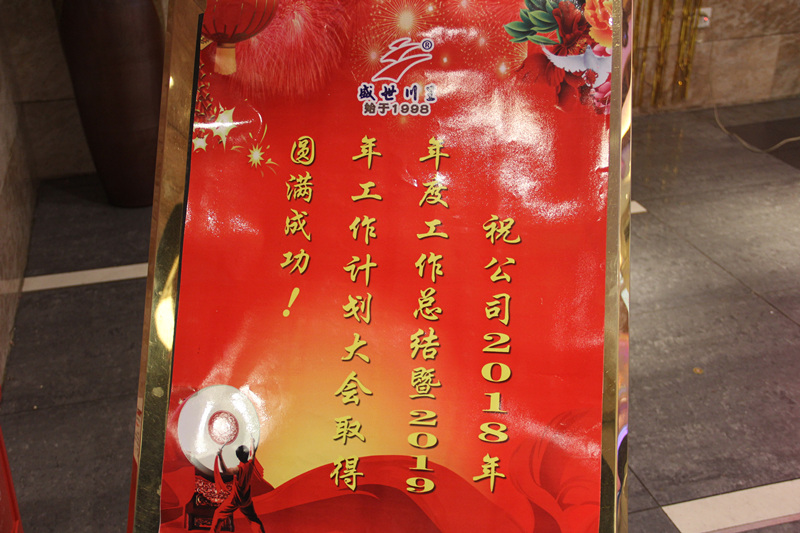 ®
盛世川
始于1998
祝公司2018年
年度工作总结暨2019
年工作计划大会取得
圆满成功！